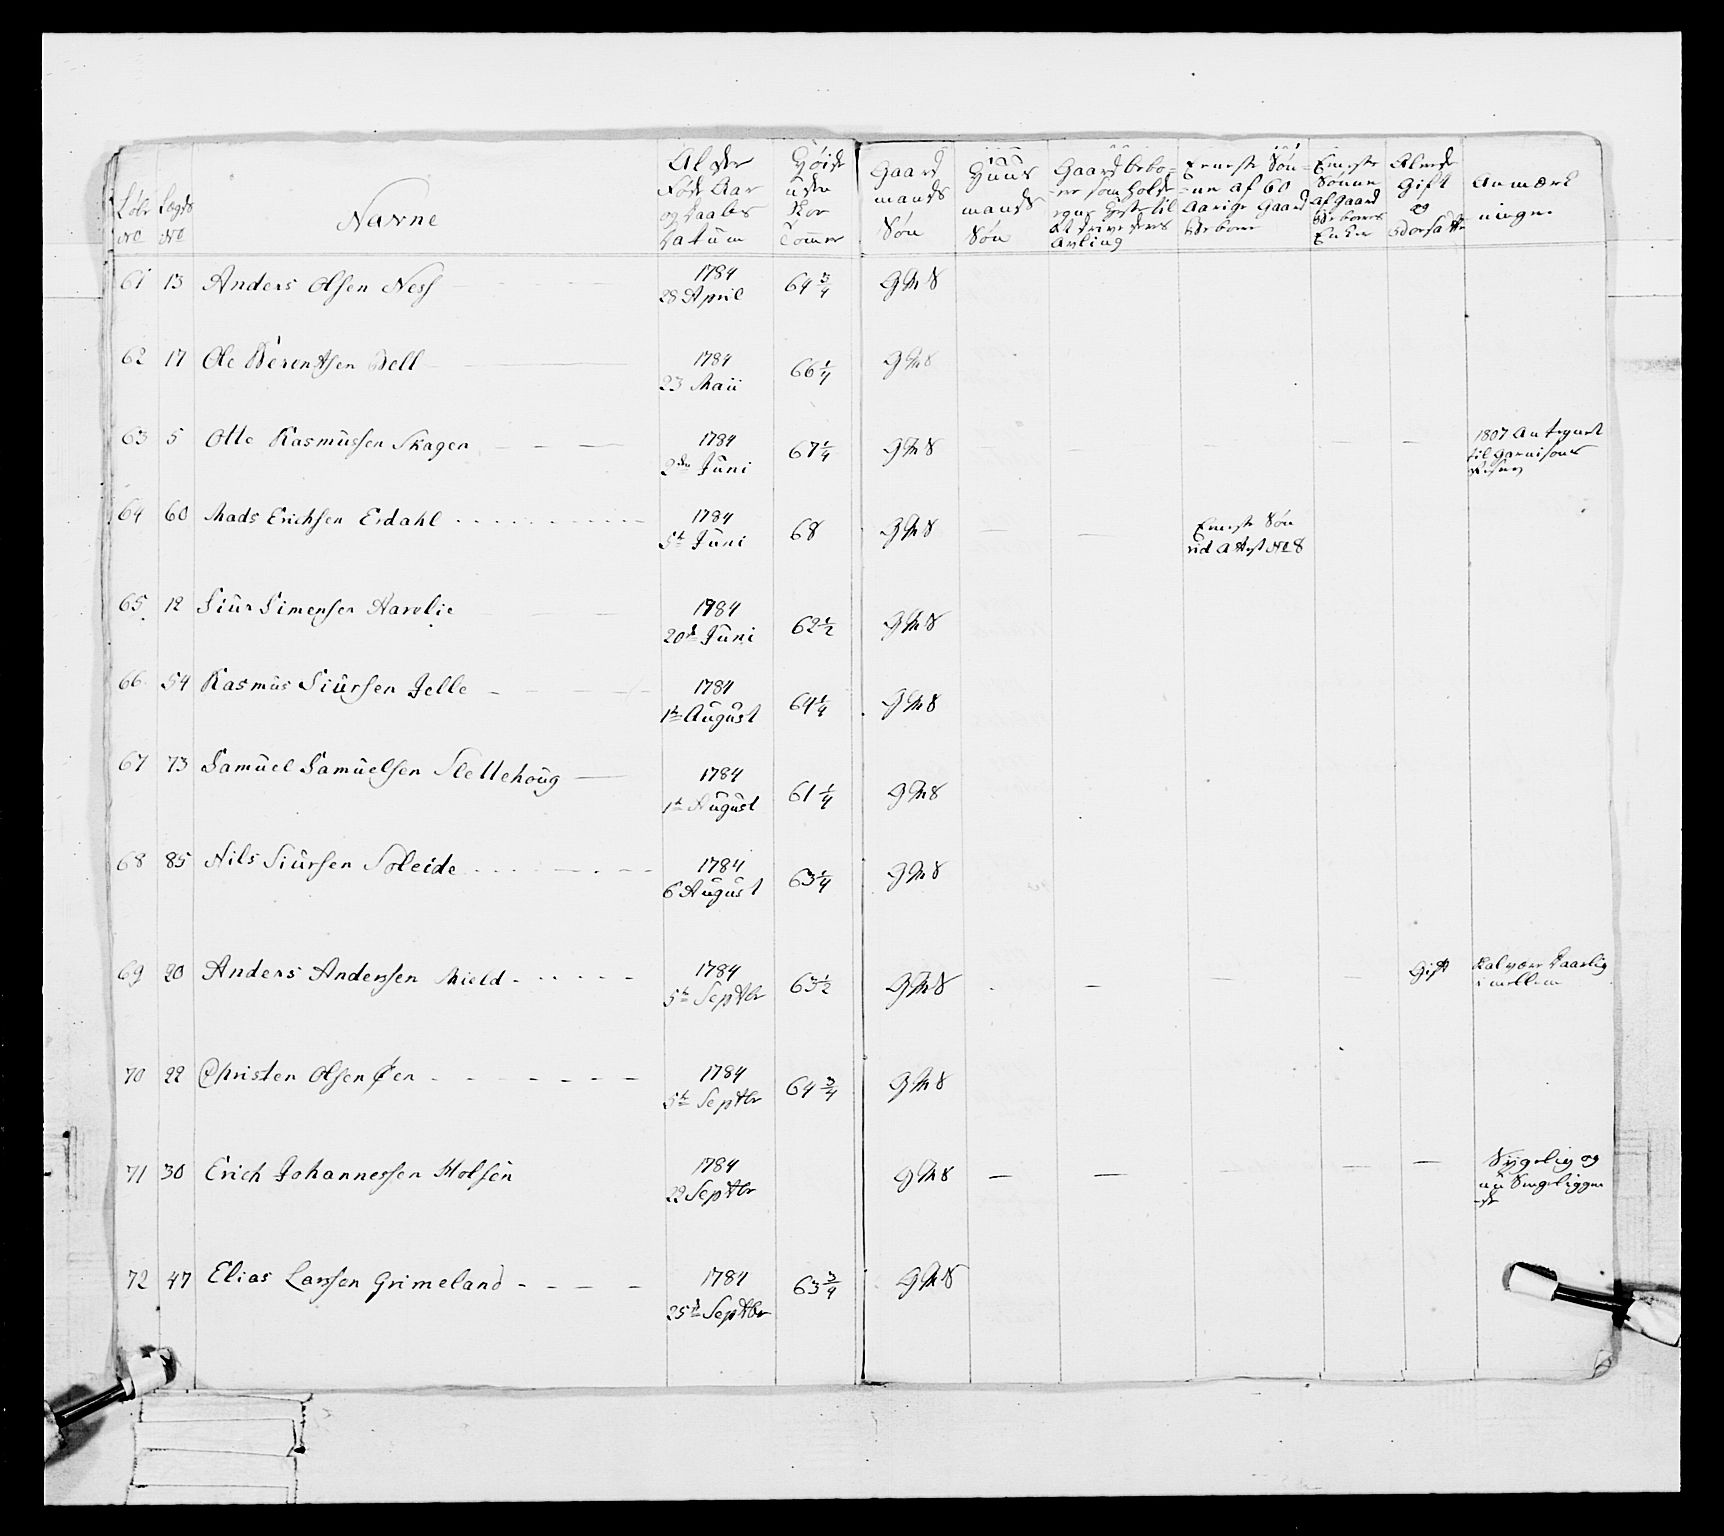 Løbe No
Lægds No
Navne
Alder Føds Aar og Daabs Datum
Høide uden Skoe Tommer
Gaard mands Søn
Huus mands Søn
Gaardbebo-
-er som holde
egne Heste til
At drive deres
Avling
Eeneste Søn-
-ner af 60
Aarige Gaard
Beboere
Eeneste Sønner af Gaard Beboeres Enker
Allerede Gift og Bosatte
Anmærk ninger
61 13 Anders Olsen Ness 1784 28 April 64 3/4 G M S
62 17 Ole Berentsen Bell 1784 23 Maii 66 1/4 G M S
63 5 Otte Rasmussen Skagen 1784 2den Juni 67 1/4 G M S 1807 Antegnet til Garnisons
64 60 Mads Erichsen Erdahl 1784 5te Juni 68 G M S Eeneste Søn vid Attest No 8
65 12 Siur Simensen Harolie 1784 20d Juni 62 1/2 G M S
66 54 Rasmus Siursen Jelle 1784 1te August 64 1/4 G M S
67 73 Samuel Samuelsen Slettehoug 1784 1te August 61 1/4 G M S
68 85 Nils Siursen Soleide 1784 6 August 63 1/4 G M S
69 20 Anders Andersen Mield 1784 5te Septbr 63 1/2 G M S Gift Daarlig imellem
70 22 Christen Olsen Øen 1784 5te Septbr 64 3/4 G M S
71 30 Erich Johannessen Holsen 1784 22 Septbr G M S Sygelig og nu Sengeliggen
-de
72 47 Elias Larsen Grimeland 1784 25d Septbr 63 3/4 G M S